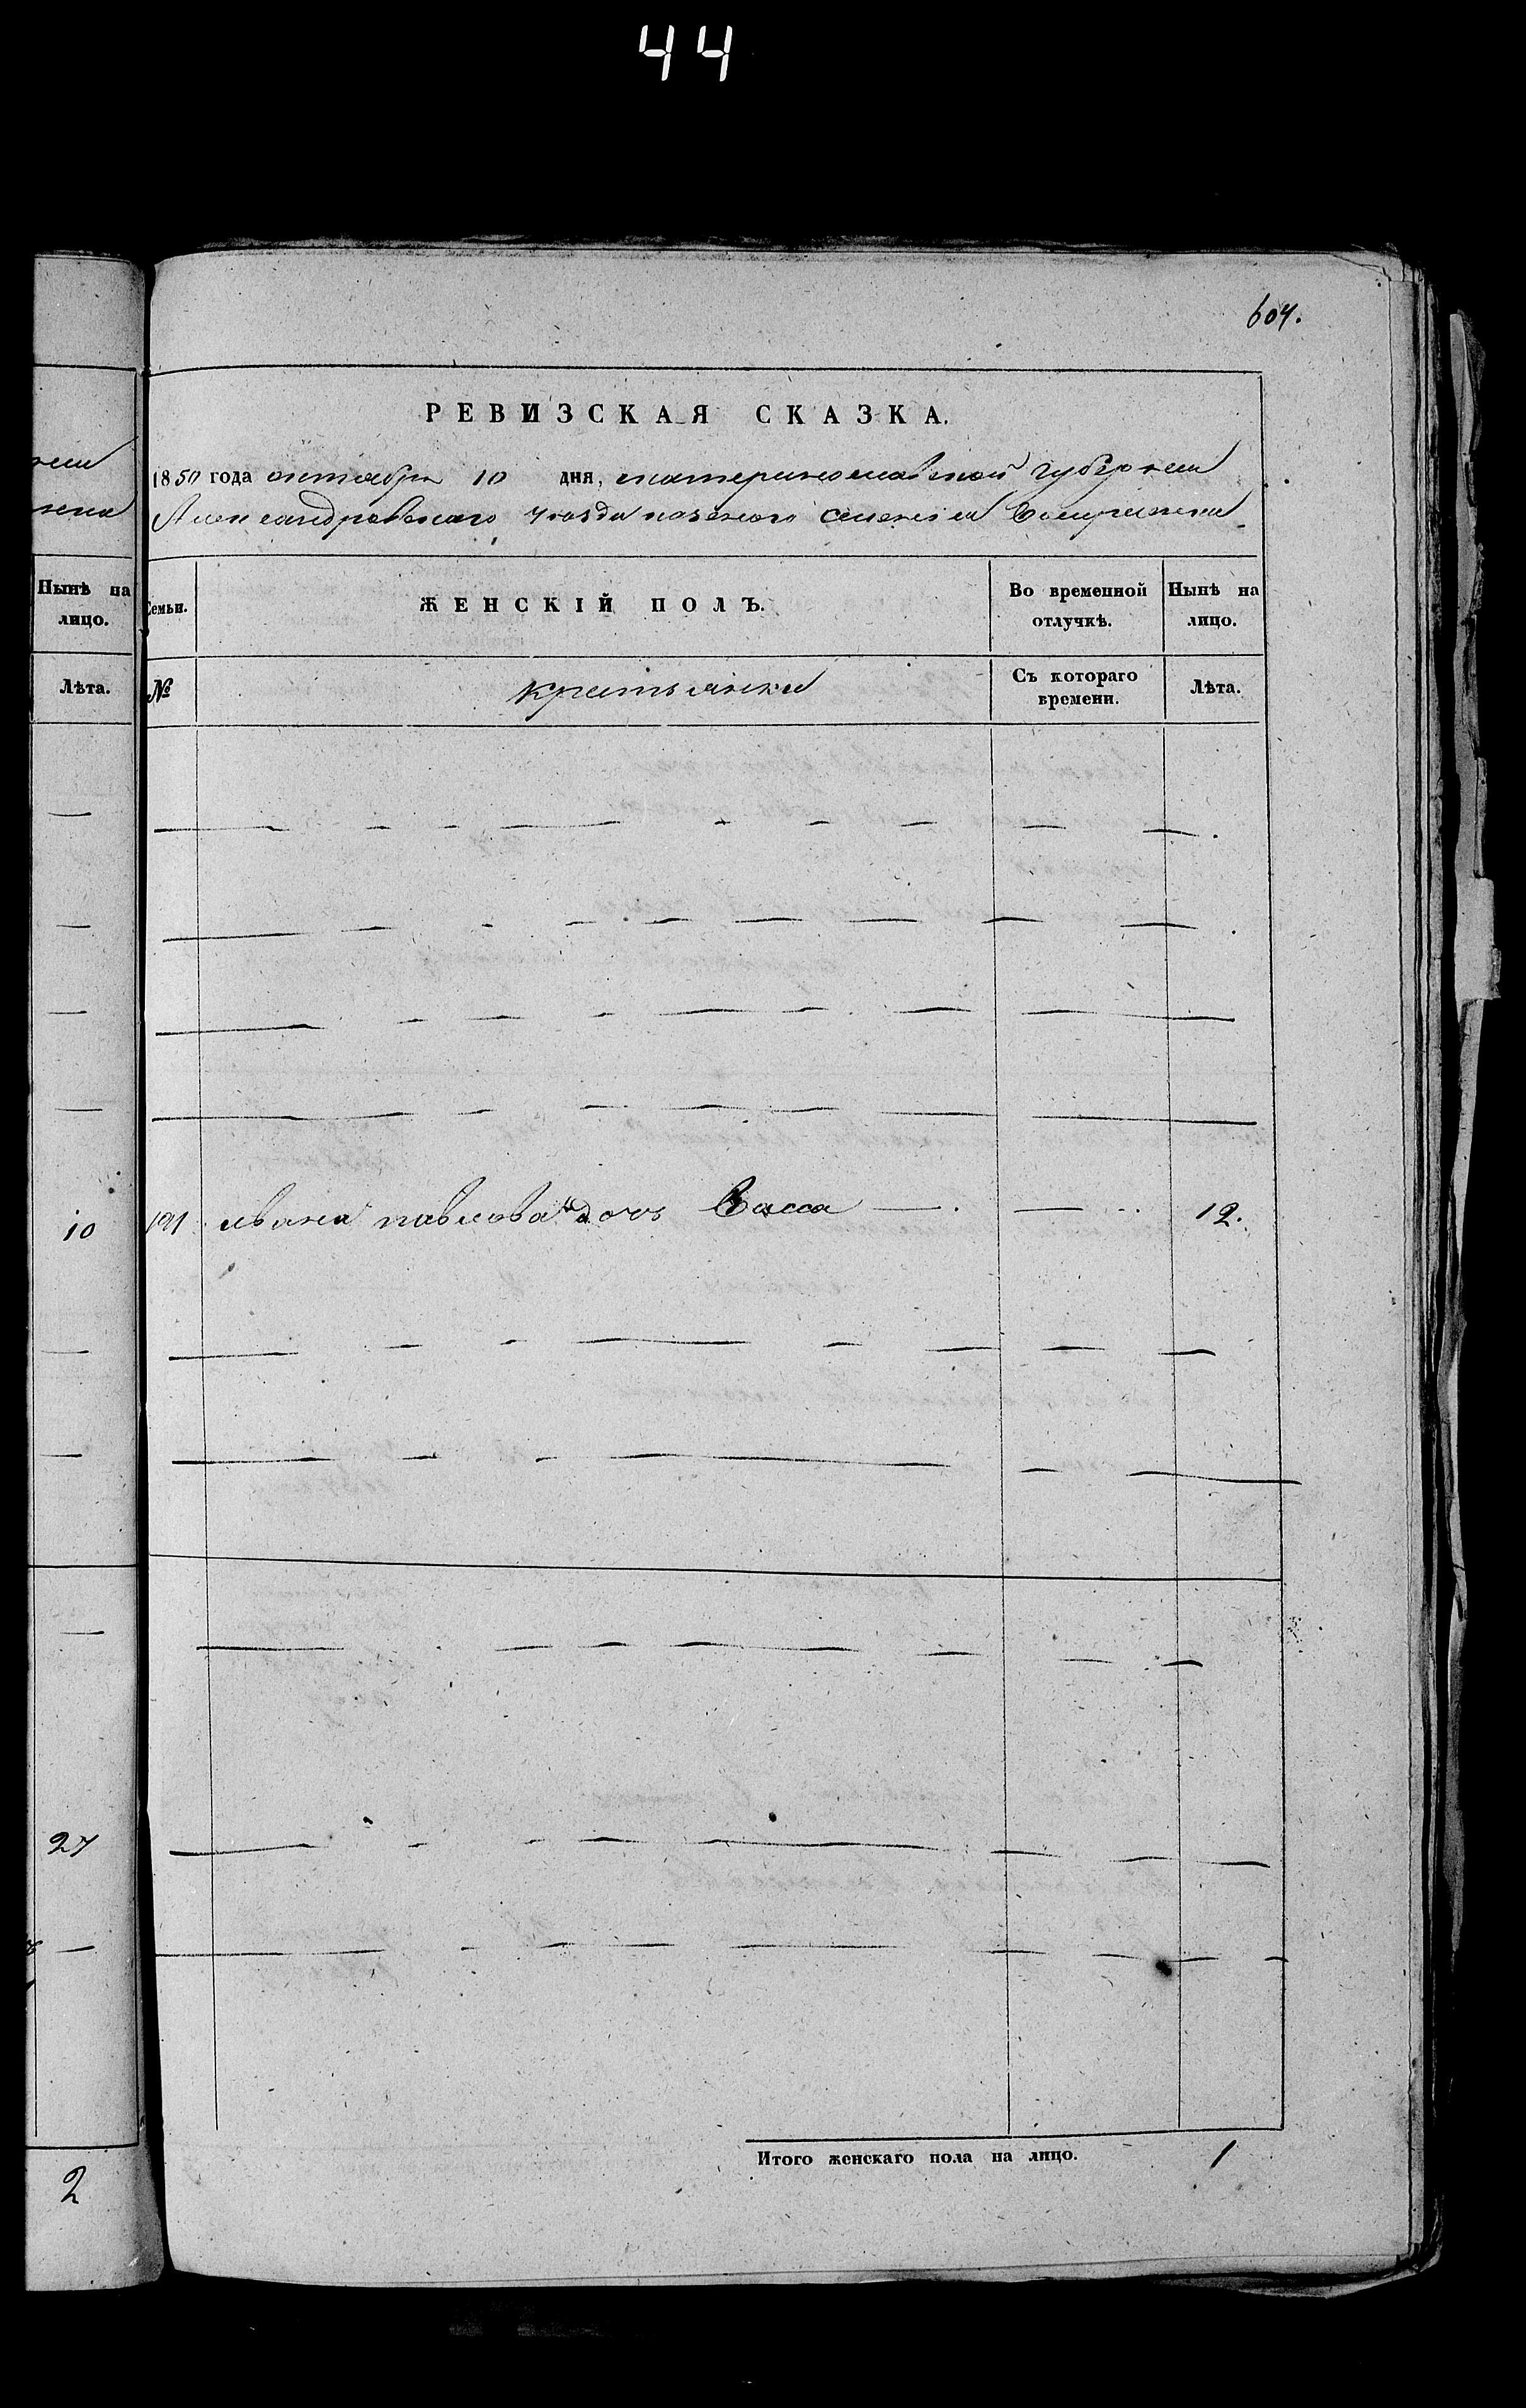 44
604.
РЕВИЗСКАЯ СКАЗКА.
1850 года октября 10 дня, екатеринославской губернии
Александровскаго уезда казеного селения
Нынѣ на лицо.
Лѣта.
10
27
2
Семьи.
ЖЕНСКІЙ ПОЛЪ.
Во временной отлучкѣ.
Нынѣ на лицо.
№
крестьянки
Съ котораго времени.
Лѣта.
191 ивана павлова дочь Васса 12.
Итого женскаго пола на лицо. 1